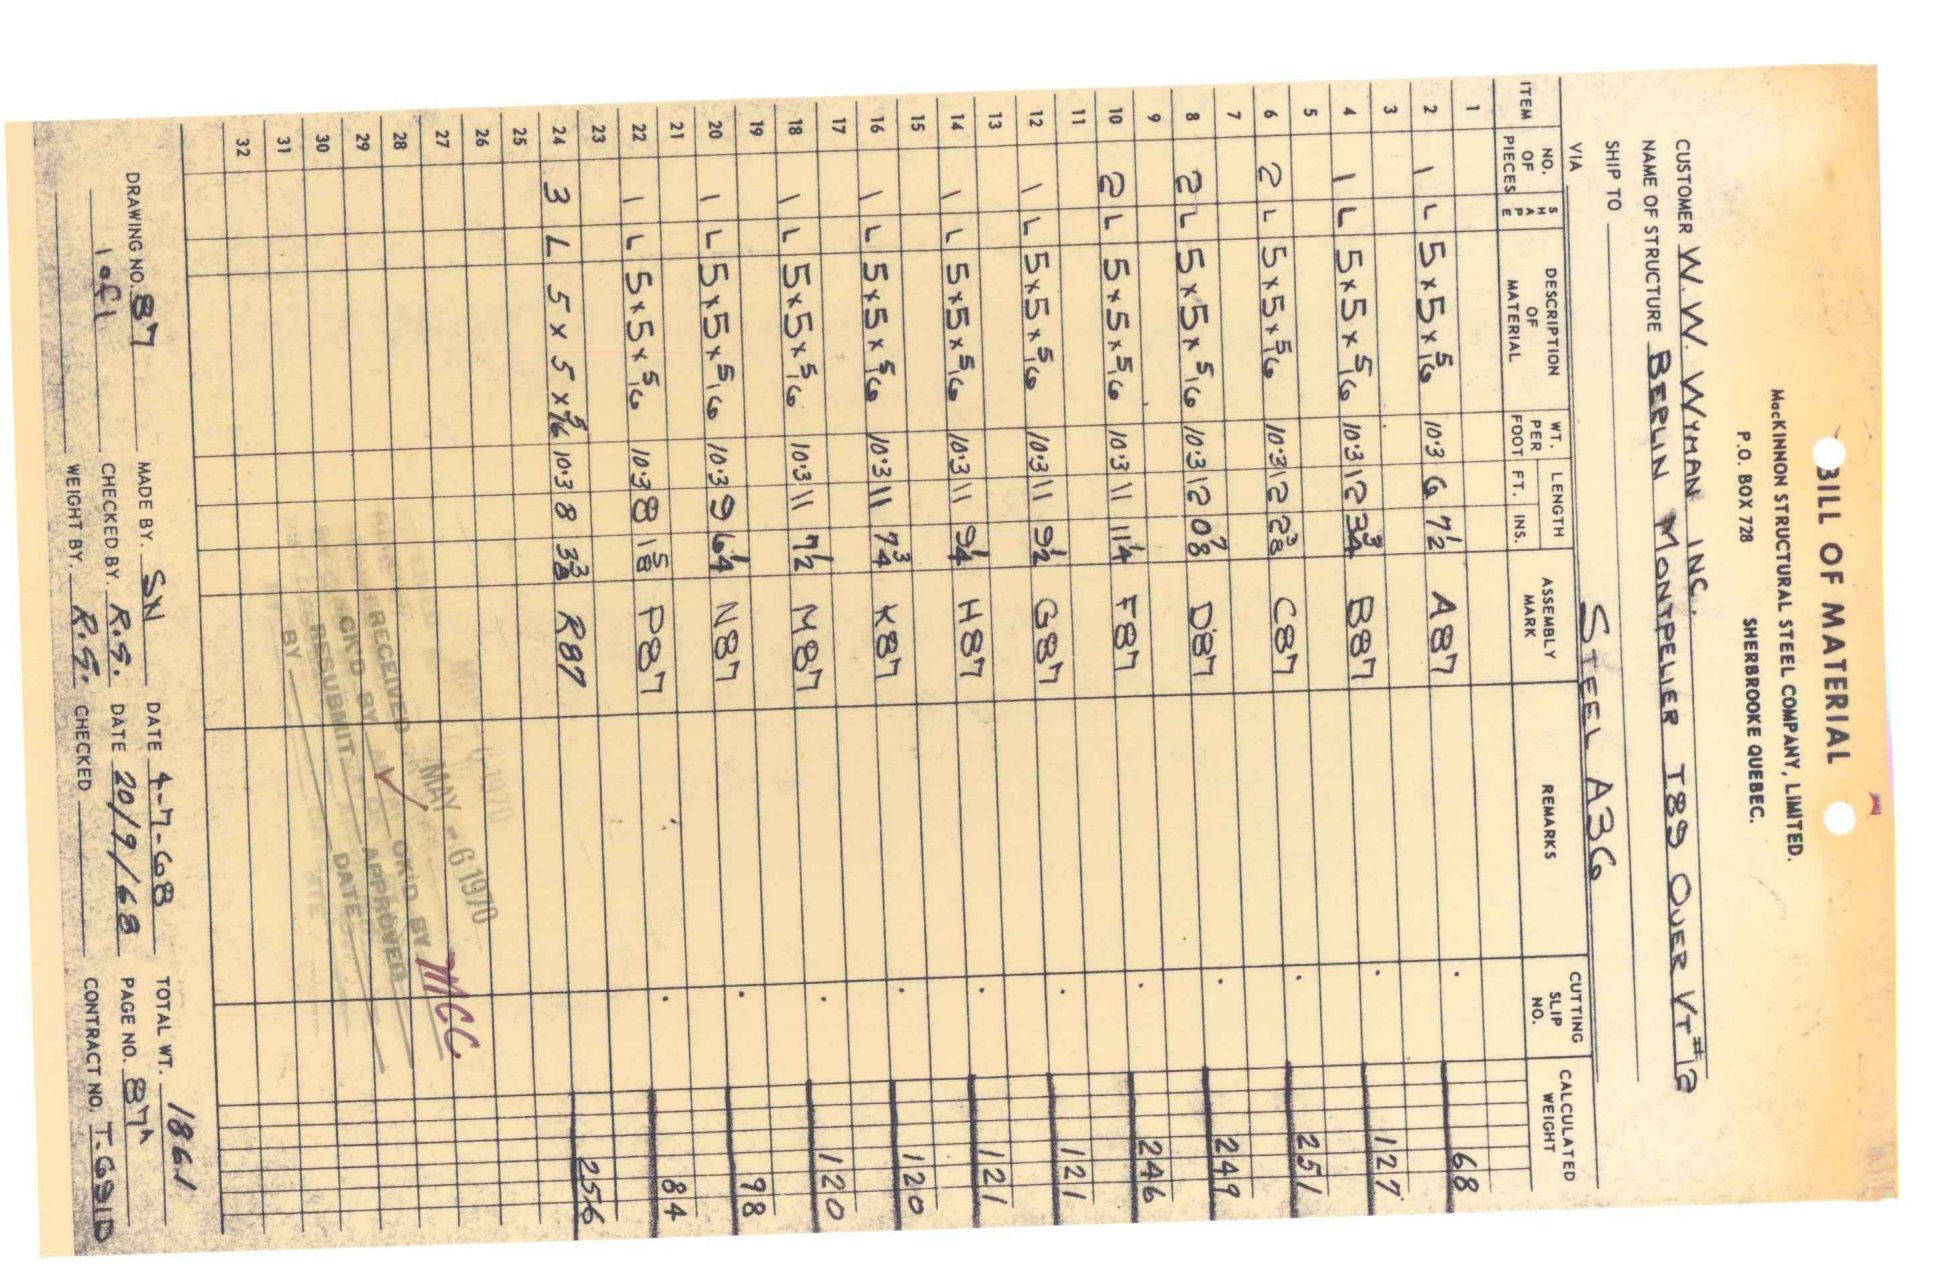 BILL OF MATERIAL
MacKINNON STRUCTURAL STEEL COMPANY, LIMITED.
P.O. BOX 728 SHERBROOKE QUEBEC.
CUSTOMER W. W. WYMAN INC.
NAME OF STRUCTURE BERLIN MONTPELIER T89 OVER VT #12
SHIP TO
VIA STEEL A36
ITEM NO. OF PIECES SHAPE DESCRIPTION OF MATERIAL WT. PER FOOT LENGTH FT. INS. ASSEMBLY MARK REMARKS CUTTING SLIP NO. CALCULATED WEIGHT
1
2 1 L 5x5x5/16 10.3 6 7 1/2 A87 68
3
4 1 L 5x5x5/16 10.3 12 3 3/4 B87 127
5
6 2 L 5x5x5/16 10.3 12 2 3/8 C87 251
7
8 2 L 5x5x5/16 10.3 12 0 7/8 D87 249
9
10 2 L 5x5x5/16 10.3 11 11 1/4 F87 246
11
12 1 L 5x5x5/16 10.3 11 9 1/2 G87 121
13
14 1 L 5x5x5/16 10.3 11 9 1/4 H87 121
15
16 1 L 5x5x5/16 10.3 11 7 3/4 K87 120
17
18 1 L 5x5x5/16 10.3 11 7 1/2 M87 120
19
20 1 L 5x5x5/16 10.3 9 6 1/4 N87 98
21
22 1 L 5x5x5/16 10.3 8 1 5/8 P87 84
23
24 3 L 5x5x5/16 10.3 8 3 3/8 R87 256
25
26
27
28
29
30
31
32
MAY -6 1970
RECEIVED
CK'D BY OK'D BY MCC
RESUBMIT APPROVED
BY DATE
DRAWING NO. 87 MADE BY. SN DATE 4-7-68 TOTAL WT. 1861
1 of 1 CHECKED BY. R.G. DATE 20/9/68 PAGE NO. 87A
WEIGHT BY. R.G. CHECKED CONTRACT NO. T-691D